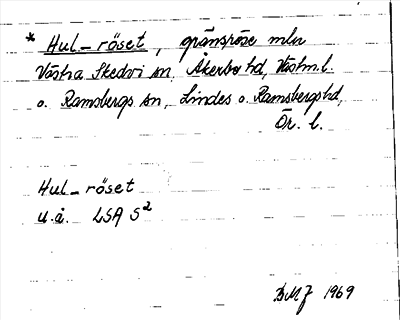 * Hul-röset, gränsröse mln
Västra Skedvi sn, Åkerbo hd, Västm.l.
o. Ramsbergs sn, Lindes o. Ramsbergs hd,
Ör. l.
Hul-röset
u.å. LSA S²
DMJ 1969